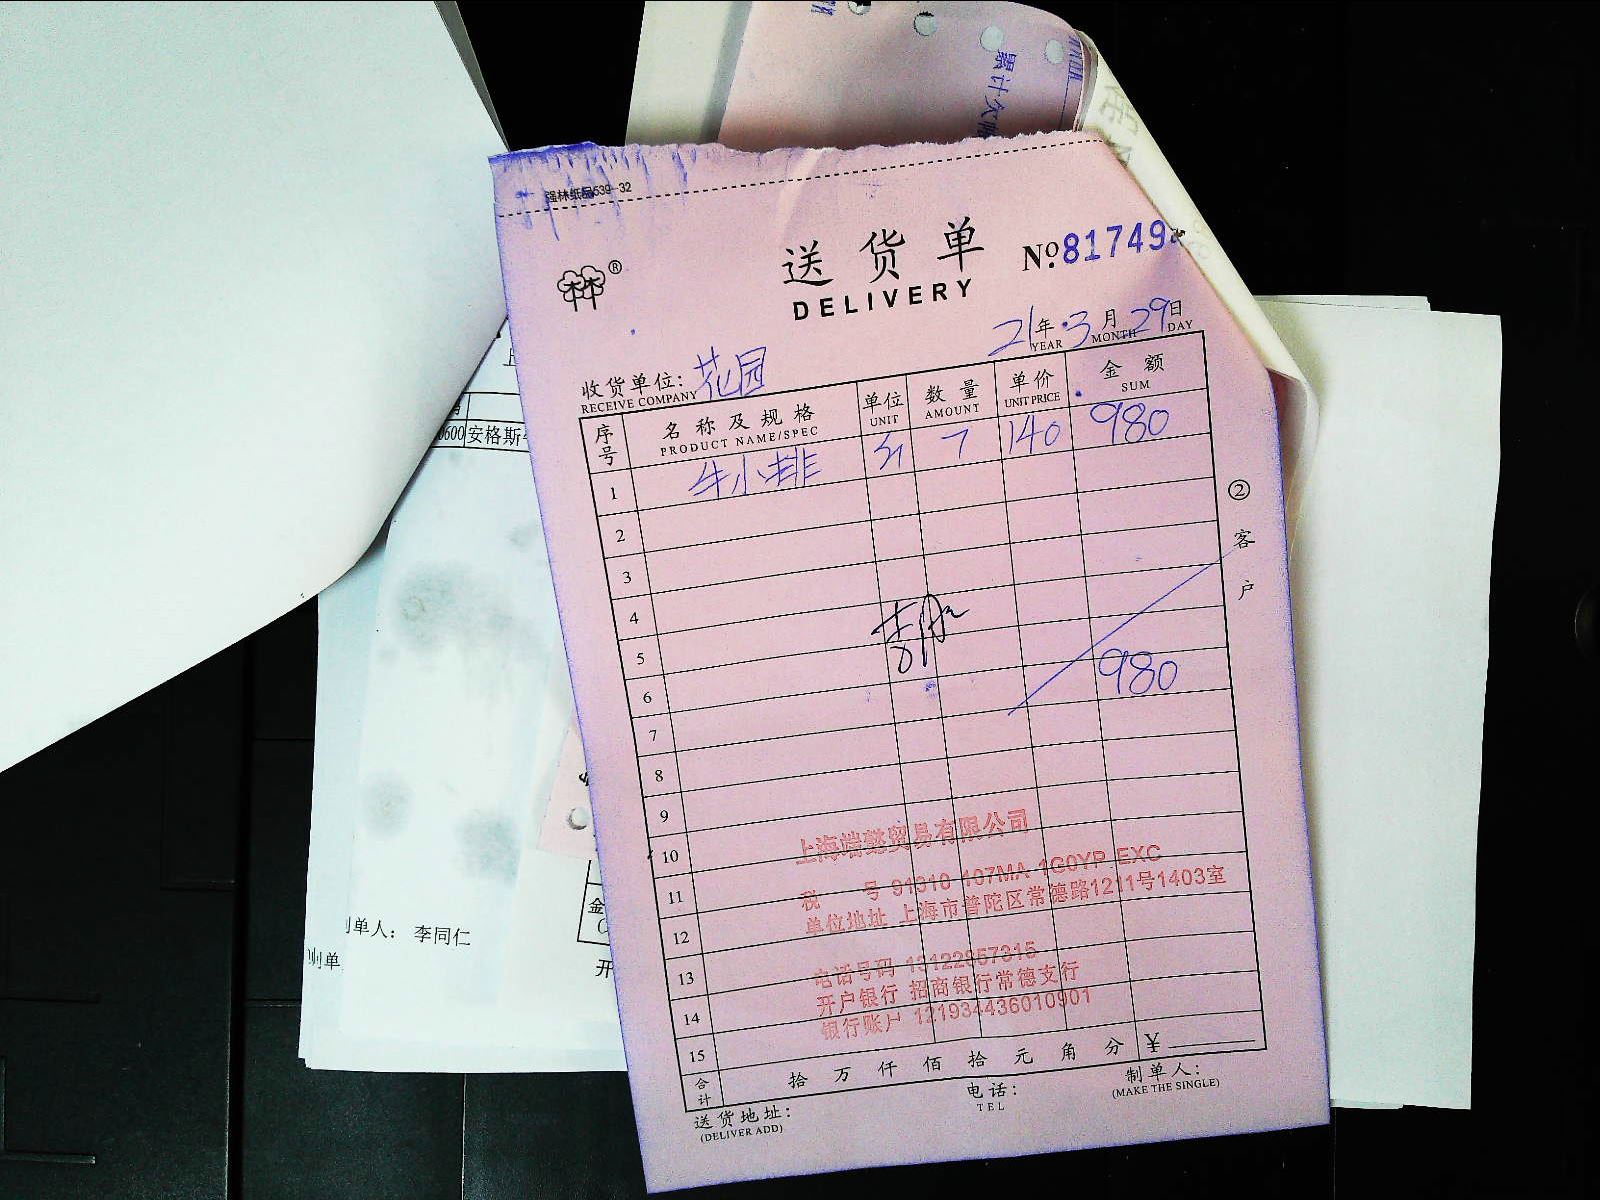 累计欠
强林纸品639-32
送货单
DELIVERY
№81749
21年3月29日
YEAR MONTH DAY
收货单位：花园
RECEIVE COMPANY
序号 名称及规格 单位 数量 单价 金额
PRODUCT NAME/SPEC UNIT AMOUNT UNIT PRICE SUM
牛小排 7 140 980
1
2
3
4
5
6 980
7
8
9
10
11
12
13
14
15
②客户
上海端懿贸易有限公司
税 号 91310 107MA 1G0YP EXC
单位地址 上海市普陀区常德路1211号1403室
电话号码 13122857315
开户银行 招商银行常德支行
银行账户 121934436010901
合计 拾 万 仟 佰 拾 元 角 分 ¥
送货地址：
(DELIVER ADD)
电话：
TEL
制单人：
(MAKE THE SINGLE)
安格斯
制单人： 李同仁
制单
金
开